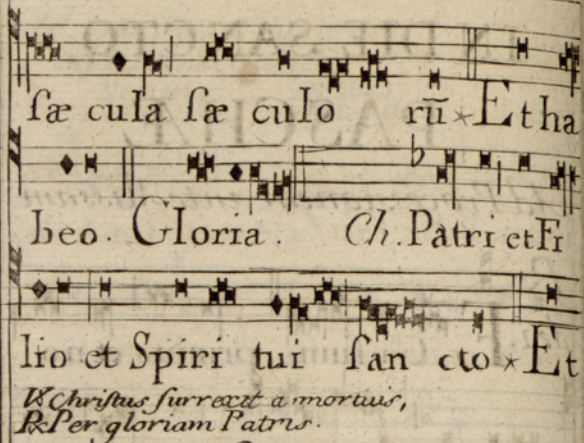 ſæ cula ſæ culo rū * Et ha
beo. Gloria. Ch. Patri et Fi
lio et Spiri tui ſan cto * Et
℣ Chriſtus ſurrexit a mortuis,
℟ Per gloriam Patris.